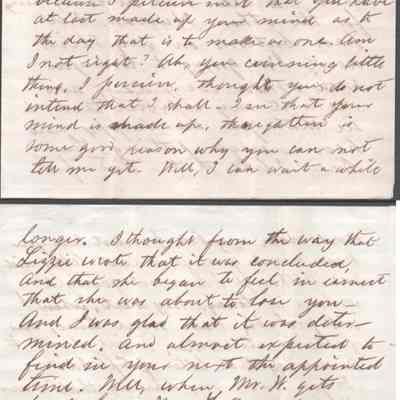 because I perceive in it that you have
at last made up your mind as to
the day that is to make us one. Am
I not right? Ah, you cunning little
thing, I perceive, though you do not
intend that I shall - I see that your
mind is made up, though there is
some good reason why you can not
tell me yet. Well, I can wait a while
longer. I thought from the way that
Lizzie wrote that it was concluded,
And that she began to feel in earnest
that she was about to lose you -
And I was glad that it was deter-
mined. And almost expected to
find in your next the appointed
time. Well, when Mr. H. gets